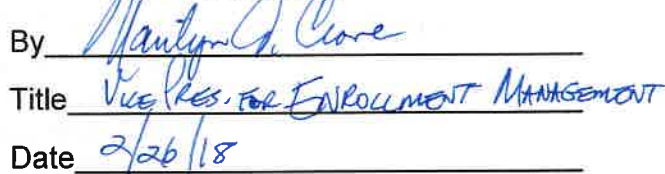 By Marilyn J. Crone
Title Vice Pres. for Enrollment Management
Date 2/26/18